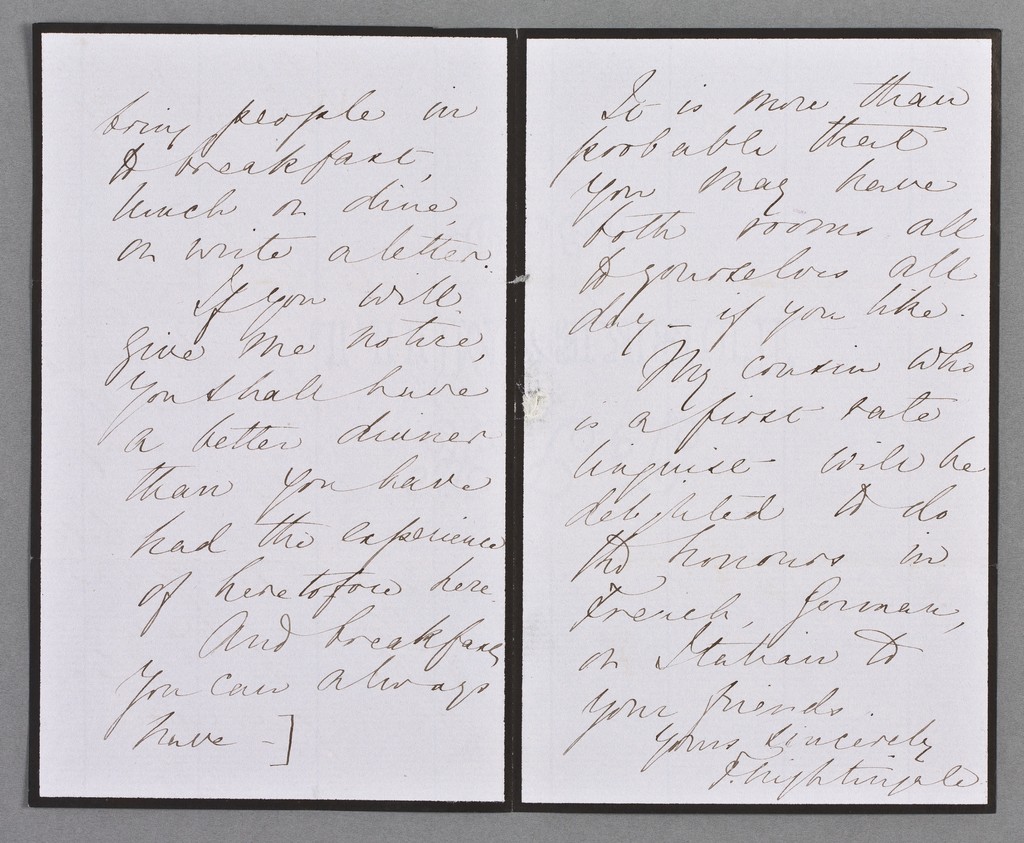 bring people in
to breakfast,
lunch or dine,
or write a letter.
If you will
give me notice,
you shall have
a better dinner
than you have
had the experience
of heretofore here.
And breakfast
you can always
have -]
It is more than
probable that
you may have
both rooms all
to yourselves all
day - if you like.
My cousin who
is a first rate
linguist will be
delighted to do
the honours in
French, German,
or Italian to
your friends.
Yours sincerely
F. Nightingale